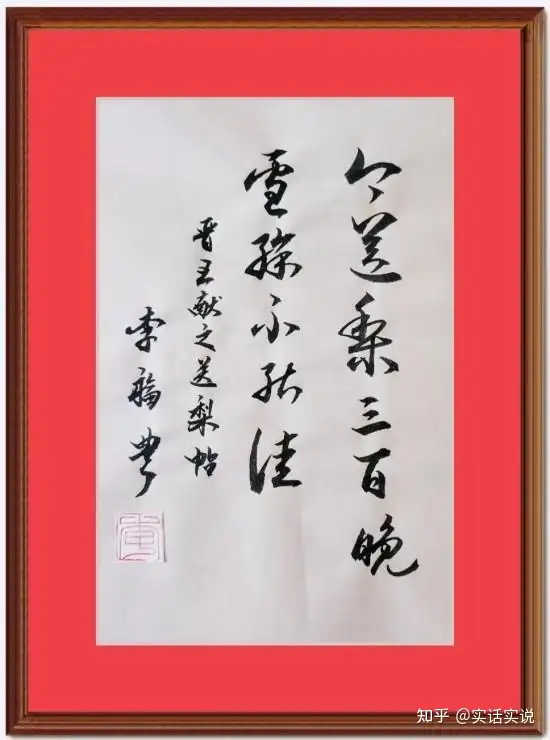 今送梨三百晚
雪殊不能佳
晋王献之送梨帖
李福
知乎 @实话实说